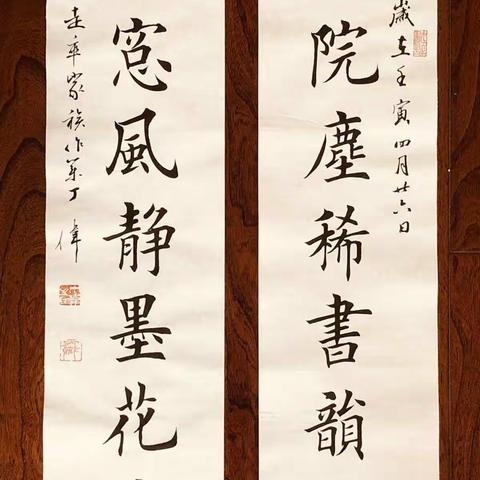 歲在壬寅四月廿六日
院塵稀書韻
窓風静墨花
家族作
丁偉